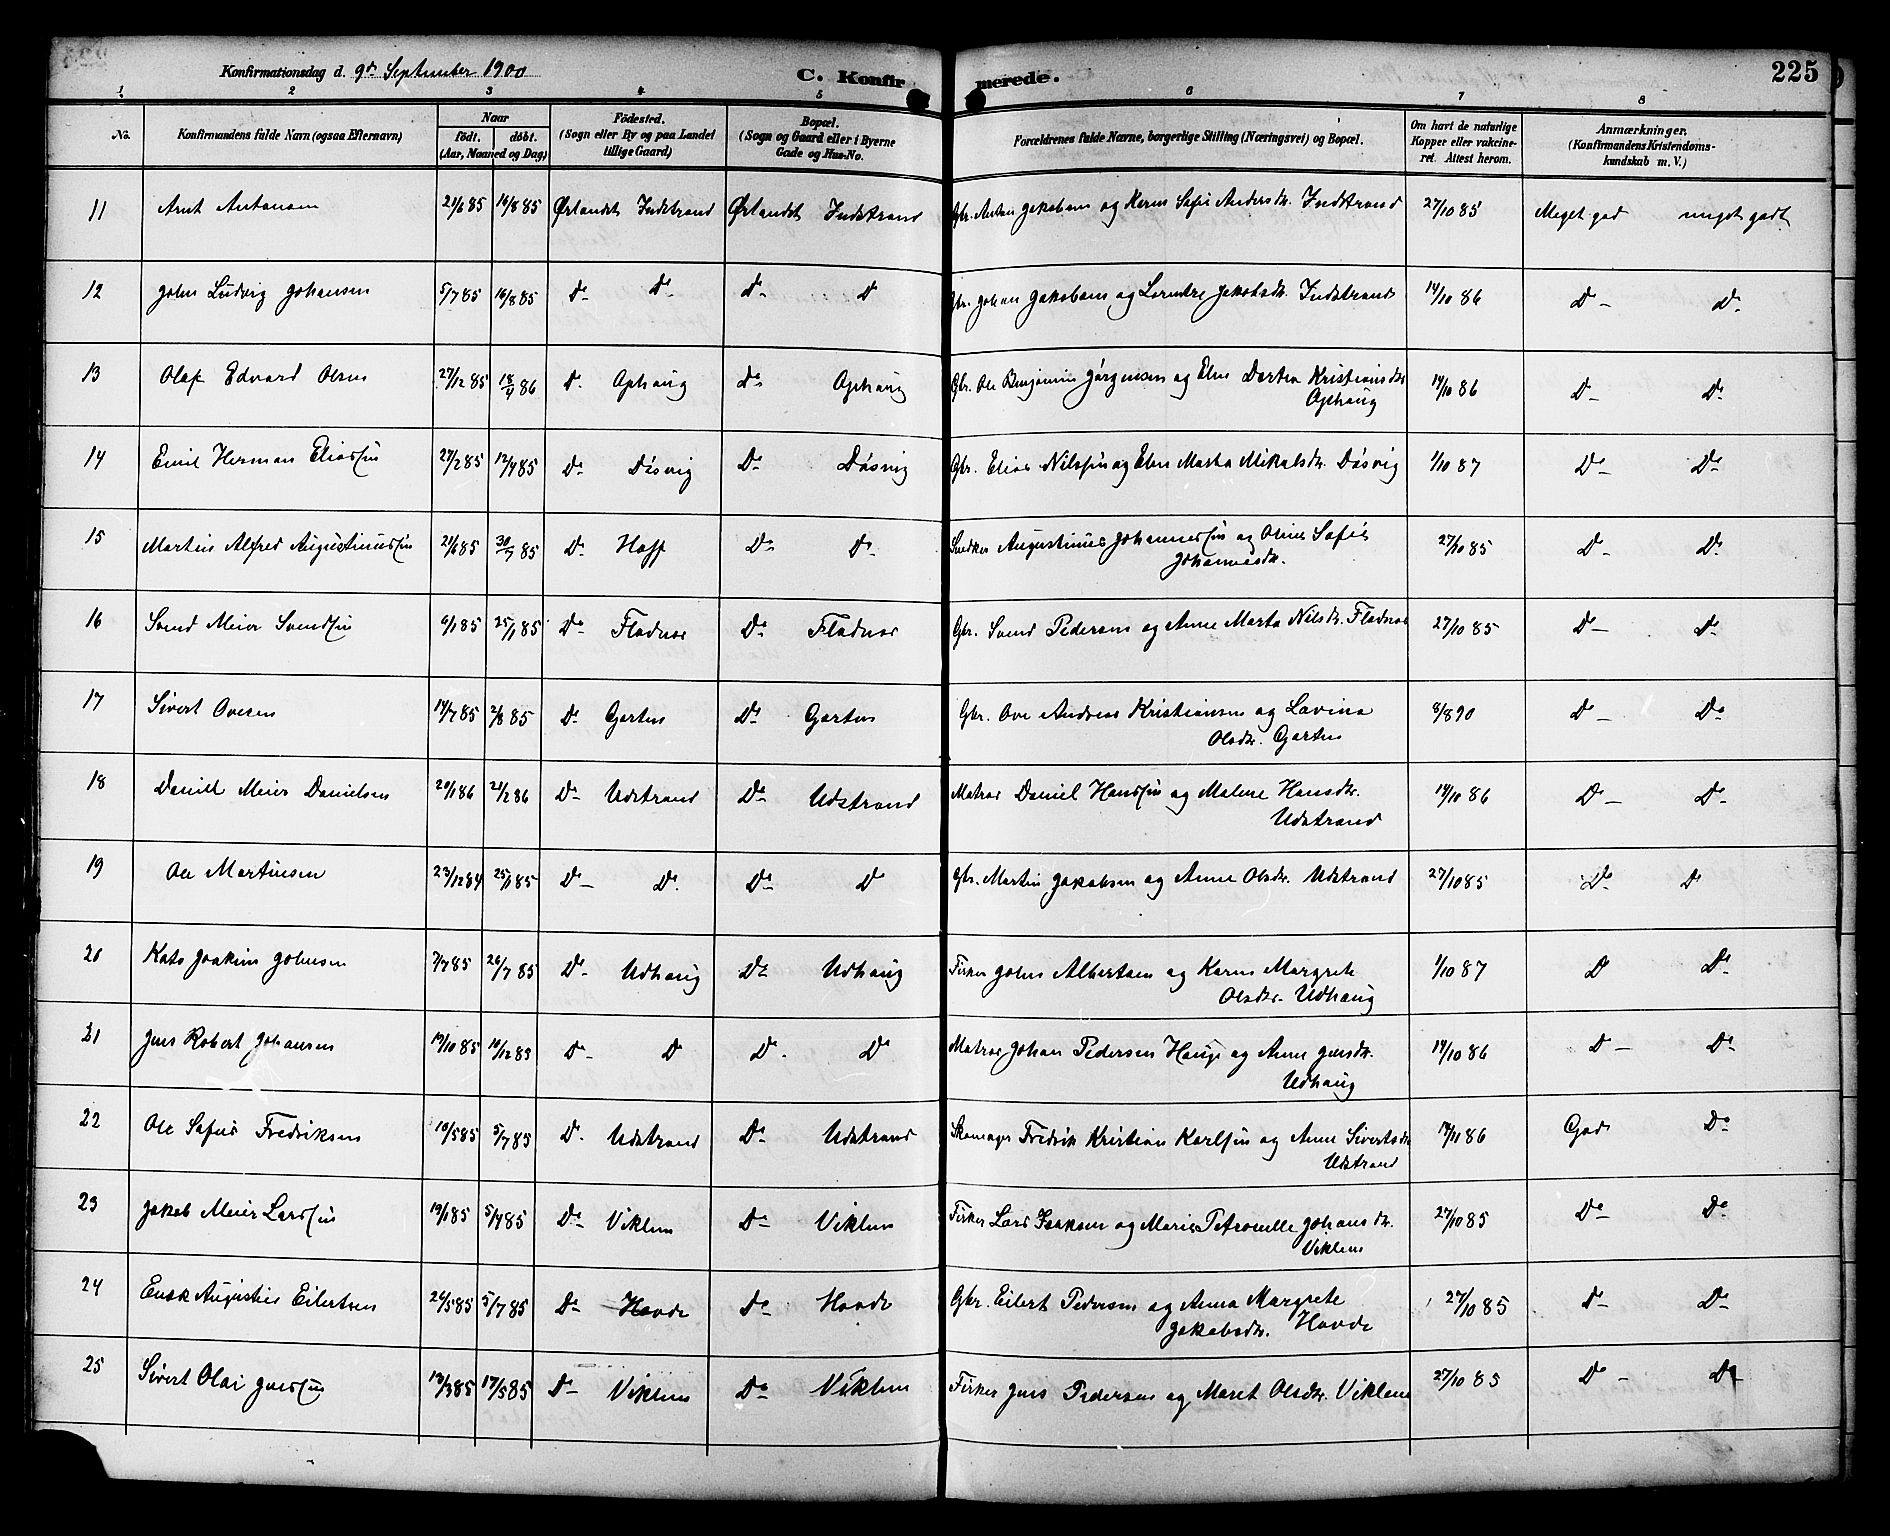 Konfirmationsdag d. 9de September 1900 C. Konfirmerede. 225
1 2 3 4 5 6 7 8
No. Konfirmandens fulde Navn (ogsaa Efternavn) Naar födt. döbt. (Aar, Maaned og Dag) Födested. (Sogn eller By og paa Landet tillige Gaard) Bopæl. (Sogn og Gaard eller i Byerne Gade og Hus-No. Forældrenes fulde Navne, borgerlige Stilling (Næringsvei) og Bopæl. Om havt de naturlige Kopper eller vakcineret. Attest herom. Anmærkninger. (Konfirmandens Kristendomskundskab m. V.)
11 Arnt Antonsen 21/6 85 16/8 85 Ørlandet Indstrand Ørlandet Indstrand Gbr. Anton Jakobsen og Karen Sofie Andersdr. Indstrand 27/10 85 Meget god meget godt
12 John Ludvig Johansen 5/7 85 16/8 85 Do Do Do Do Gbr. Johan Jakobsen og Jakobsdr. Indstrand 14/10 86 Do Do
13 Olaf Edvard Olsen 27/12 85 18/4 86 Do Ophaug Do Ophaug Gbr. Ole Benjamin Jørgensen og Elen Dortea Kristiansdr
Ophaug 14/10 86 Do Do
14 Emil Herman Eliassen 27/2 85 12/4 85 Do Døsvig Do Døsvig Gbr. Elias Nilssen og Elen Marta Mikalsdr. Døsvig 1/10 87 Do Do
15 Martin Alfred Augustinussen 21/6 85 30/7 85 Do Hoff Do Do Snedker Augustinus Johannessen og Oline Sofie
Johannesdr. 27/10 85 Do Do
16 Svend Meier Svendsen 6/1 85 25/1 85 Do Fladnes Do Fladnes Gbr. Svend Pedersen og Anne Marta Nilsdr. Fladnes 27/10 85 Do Do
17 Sivert Ovesen 14/7 85 2/8 85 Do Garten Do Garten Gbr. Ove Andreas Kristiansen og Lavina
Olsdr. Garten 8/8 90 Do Do
18 Daniel Meier Danielsen 20/1 86 21/2 86 Do Udstrand Do Udstrand Matros Daniel Hanssen og Malene Hansdr.
Udstrand 14/10 86 Do Do
19 Ole Martinsen 23/12 84 25/1 85 Do Do Do Do Gbr. Martin Jakobsen og Anne Olsdr. Udstrand 27/10 85 Do Do
20 Kato Joakim Johnsen 7/7 85 26/7 85 Do Udhaug Do Udhaug Fisker John Albertsen og Karen Margrete
Olsdr. Udhaug 1/10 87 Do Do
21 Jens Robert Johansen 19/10 85 10/12 85 Do Do Do Do Matros Johan Pedersen Haug og Anne Jensdr.
Udhaug 14/10 86 Do Do
22 Ole Sefus Fredriksen 10/5 85 5/7 85 Do Udstrand Do Udstrand Skomager Fredrik Kristian Karlsen og Anne Sivertsdr
Udstrand 14/11 86 God Do
23 Jakob Meier Larssen 19/1 85 5/4 85 Do Viklem Do Viklem Fisker Lars Isaksen og Marie Petronelle Johansdr.
Viklem 27/10 85 Do Do
24 Enok Augustin Eilertsen 24/5 85 5/7 85 Do Hovde Do Hovde Gbr. Eilert Pedersen og Anna Margrete
Jakobsdr. Hovde 27/10 85 Do Do
25 Sivert Olai Jenssen 19/3 85 17/5 85 Do Viklem Do Viklem Fisker Jens Pedersen og Maret Olsdr. Viklem 27/10 85 Do Do